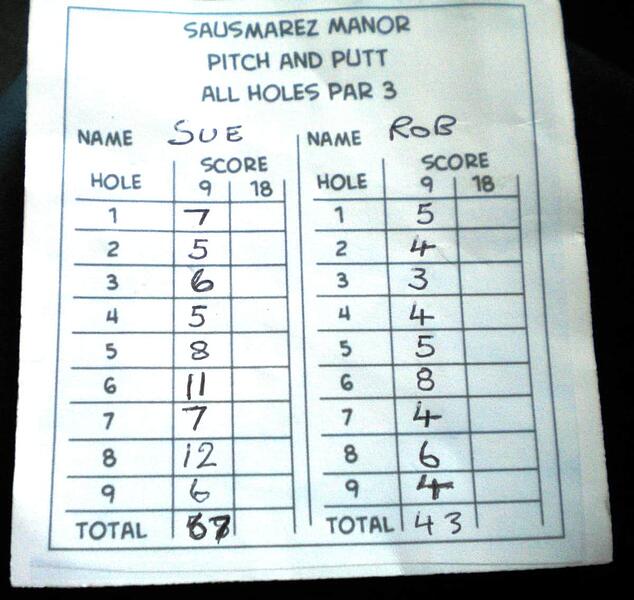 SAUSMAREZ MANOR
PITCH AND PUTT
ALL HOLES PAR 3
NAME SUE NAME ROB
SCORE SCORE
HOLE 9 18 HOLE 9 18
1 7 1 5
2 5 2 4
3 6 3 3
4 5 4 4
5 8 5 5
6 11 6 8
7 7 7 4
8 12 8 6
9 6 9 4
TOTAL 67 TOTAL 43